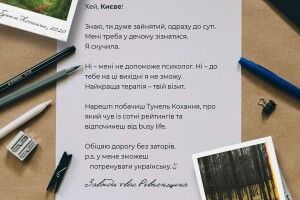 Тунель Кохання, 2020
Хей, Києве!
Знаю, ти дуже зайнятий, одразу до суті.
Мені треба у дечому зізнатися.
Я скучила.
Ні – мені не допоможе психолог. Ні – до
тебе на ці вихідні я не зможу.
Найкраща терапія – твій візит.
Нарешті побачиш Тунель Кохання, про
який чув із сотні рейтингів та
відпочинеш від busy life.
Обіцяю дорогу без заторів.
p.s. у мене зможеш
потренувати українську.
Завжди твоя Рівненщина